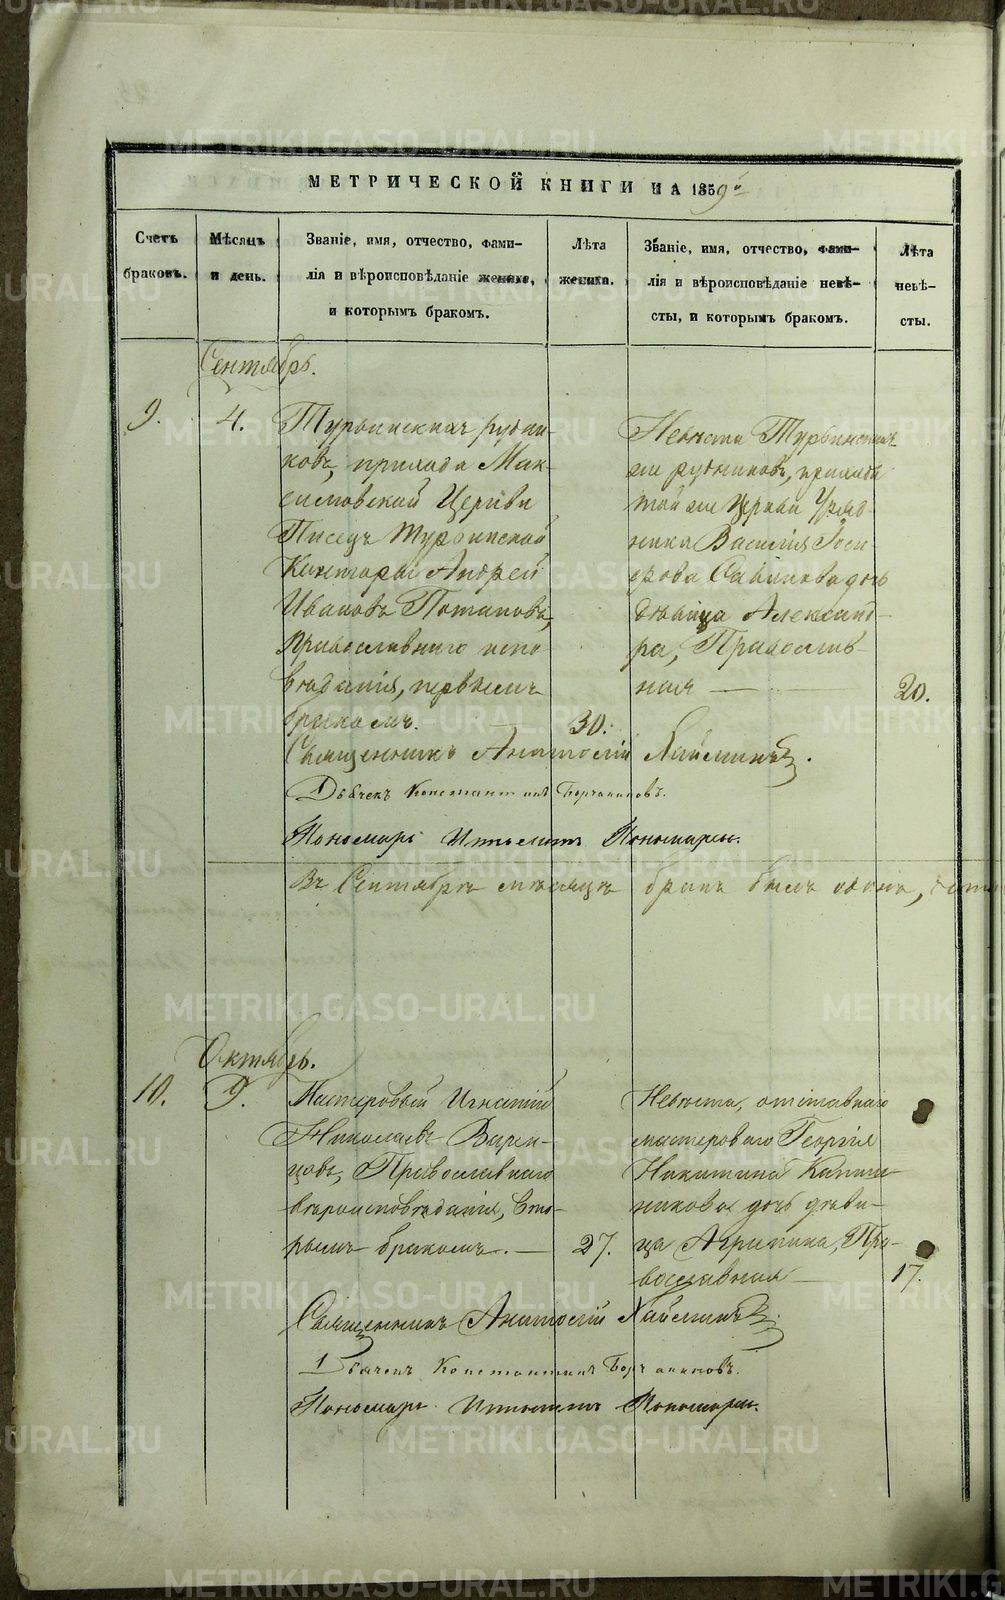 МЕТРИЧЕСКОЙ КНИГИ НА 1859й
Счетъ браковъ.
Мѣсяцъ и день.
Званіе, имя, отчество, фами-
лія и вѣроисповѣданіе жениха,
и которымъ бракомъ.
Лѣта
жениха.
Званіе, имя, отчество, фами-
лія и вѣроисповѣданіе невѣ-
сты, и которымъ бракомъ.
Лѣта
невѣ-
сты.
Сентябрь.
9.
4.
Турьинскихъ рудни-
ковъ, прихода Мак-
симовской Церкви
Писецъ Турьинской
Конторы Андрей
Ивановъ Потаповъ,
Православнаго испо
вѣданія, первымъ
бракомъ.
30.
Невѣста Турьинскихъ
же рудниковъ, прихода
той же Церкви Уряд-
ника Василія
Савинова дочь
дѣвица Александ-
ра, Православ-
ная
20.
Священникъ Анатолій Хаймин.
Дьячекъ Константинъ
Пономарь Ипполитъ Пономаревъ.
Въ Сентябрѣ мѣсяцѣ бракъ былъ одинъ,
Октябрь.
10.
9.
Мастеровый Игнатій
Николаевъ
Православнаго
вѣроисповѣданія, вто-
рымъ бракомъ.
27.
Невѣста, отставнаго
мастероваго Георгія
Никитина
дочь дѣви-
ца Агрипина, Пра-
вославная
17.
Священникъ Анатолій
Дьячекъ Константинъ
Пономарь Ипполитъ Пономаревъ.
METRIKI.GASO-URAL.RU